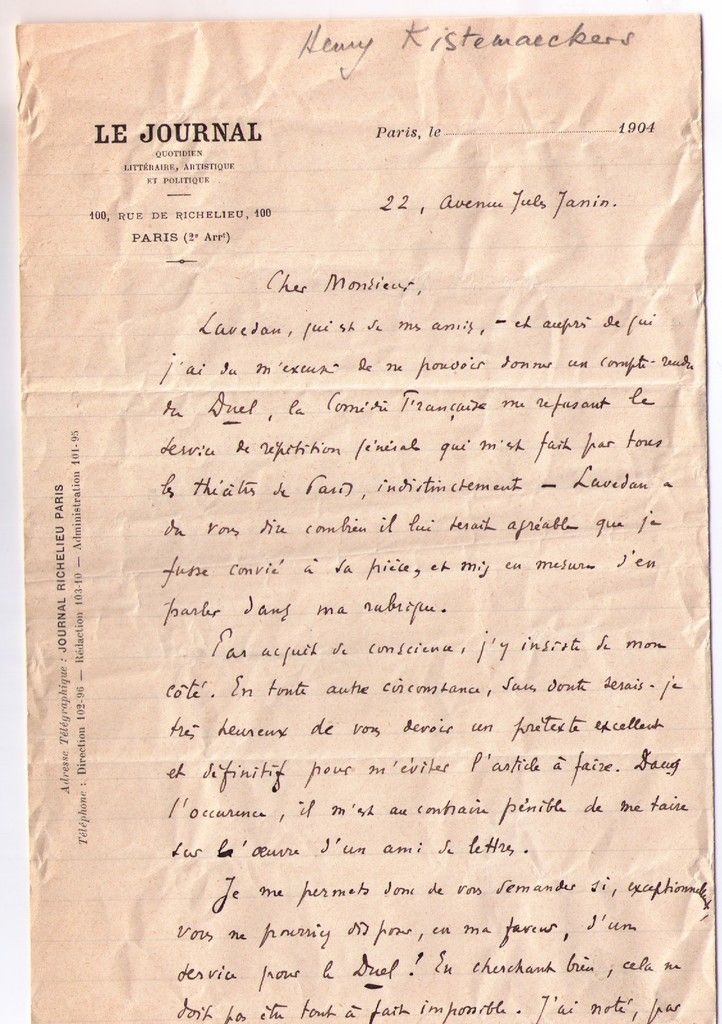 Henry Kistemaeckers
LE JOURNAL
QUOTIDIEN
LITTÉRAIRE, ARTISTIQUE
ET POLITIQUE
100, RUE DE RICHELIEU, 100
PARIS (2e Arrt)
Paris, le 1904
22, Avenue Jules Janin.
Cher Monsieur,
Lavedan, qui est de mes amis, – et auprès de qui
j'ai du m'excuser de ne pouvoir donner un compte-rendu
du Duel, la Comédie Française me refusant le
service de répétition générale qui m'est fait par tous
les théâtres de Paris, indistinctement – Lavedan a
du vous dire combien il lui serait agréable que je
fusse convié à sa pièce, et mis en mesure d'en
parler dans ma rubrique.
Par acquit de conscience, j'y insiste de mon
côté. En toute autre circonstance, sans doute serais-je
très heureux de vous devoir un prétexte excellent
et définitif pour m'éviter l'article à faire. Dans
l'occurence, il m'est au contraire pénible de me taire
sur l'œuvre d'un ami de lettres.
Je me permets donc de vous demander si, exceptionnellement,
vous ne pourriez disposer, en ma faveur, d'un
service pour le Duel! En cherchant bien, cela ne
doit pas être tout à fait impossible. J'ai noté, par
Adresse Télégraphique : JOURNAL RICHELIEU PARIS
Téléphone : Direction 102-96 — Rédaction 103-10 — Administration 101-95